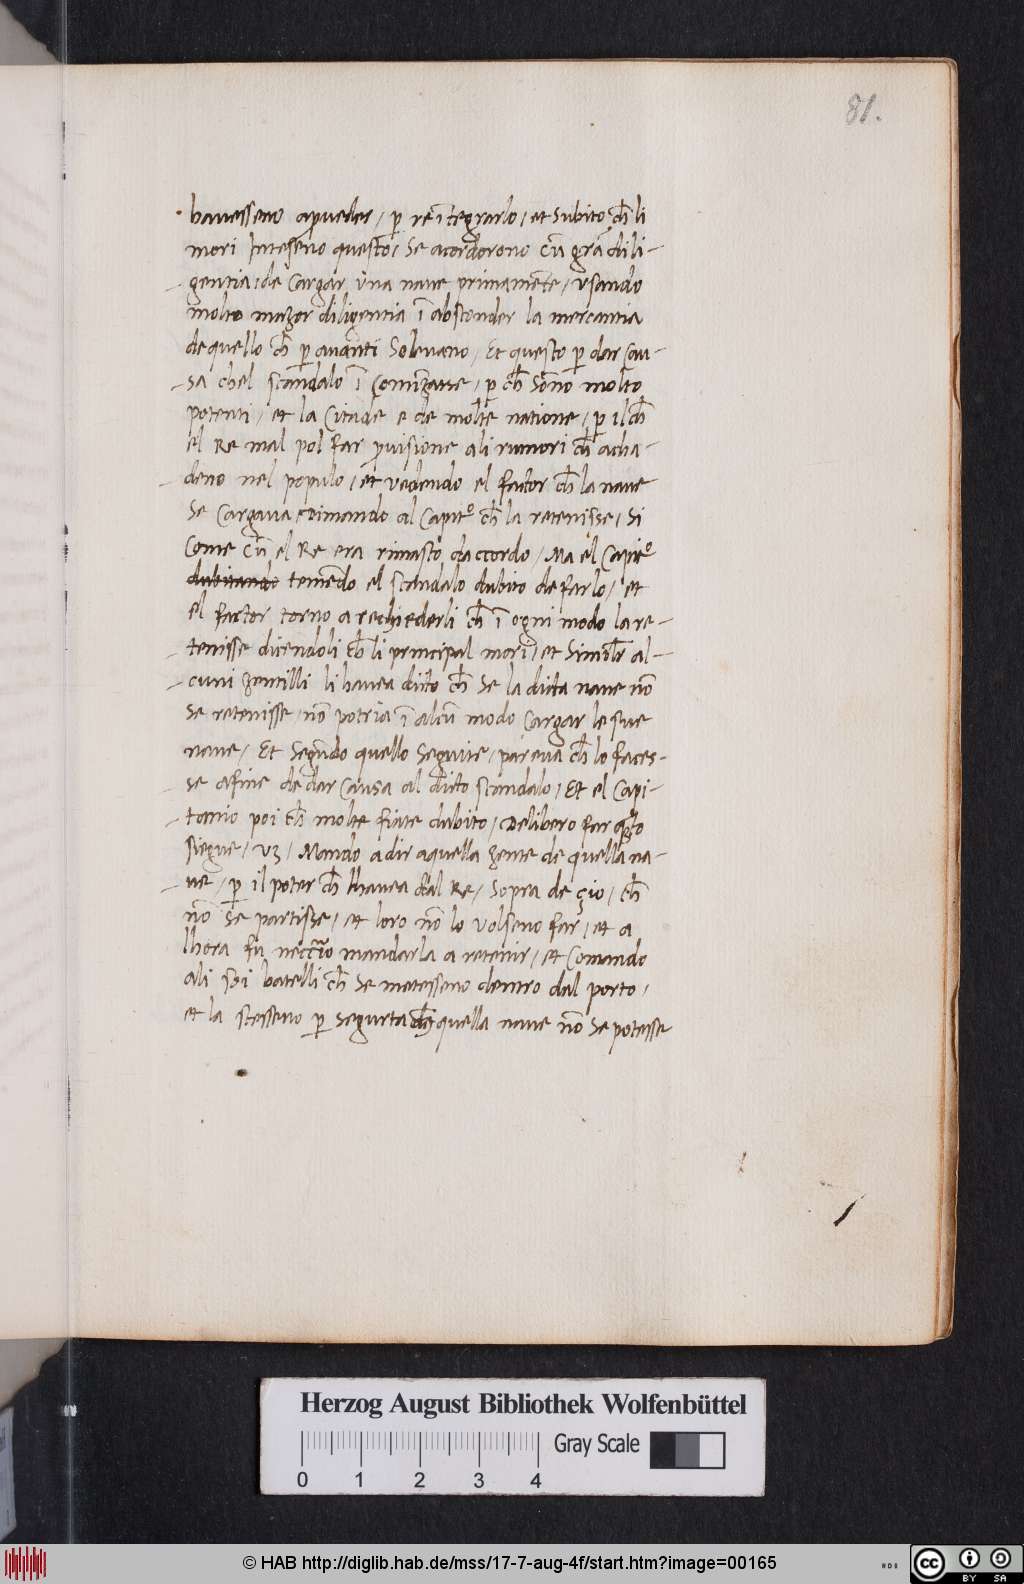 81.
havesseno a ꝓveder, ꝑ reītegrarlo, et subito ch̄ li
mori Inteseno questo, se acordorono cū grā dili-
gentia, de Cargar una nave primamēte, usando
molto mazor diligentia ī abscender la mercantia
de quello ch̄ ꝑ avanti Solevano, Et questo ꝑ dar Cau-
sa chel scandalo ī Comīzasse, ꝑ ch̄ sōno molto
potenti, et la Citade e de molte natione, ꝑ il ch̄
el Re mal pol far ꝓvisione ali rumori ch̄ acha-
deno nel populo, et vedendo el factor ch̄ la nave
se Cargava, Dimando al Capit.º ch̄ la retenisse, Si
Come cū el Re era rimasto daccordo, Ma el Capit.º
dubitando temēdo el scandalo dubito de farlo, et
el factor torno a rechiederli ch̄ ī ogni modo la re-
tenisse dicendoli ch̄ li principal mori, et Simil̄r al-
cuni zentilli li havea dicto ch̄ Se la dicta nave nō
se retenisse, nō potria ī alcū modo Cargar le sue
nave, Et Segūdo quello Seguite, pareva ch̄ lo faces-
se a fine de dar Causa al dicto scandalo, Et el Capi-
tanio poi ch̄ molte fiate dubito, Delibero far q̄sto
siegue, vz, Mando a dir a quella zente de quella na-
ve, ꝑ il poter ch̄ lhavea dal Re, Sopra de çio, ch̄
nō se partisse, et loro nō lo volseno far, et a
lhora fu neccīo mandarla a retenir, et Comando
ali Soi batelli ch̄ se metesseno dentro dal porto,
et la stesseno ꝑ segurta ch̄ quella nave nō se potesse
Herzog August Bibliothek Wolfenbüttel
Gray Scale
0 1 2 3 4
© HAB http://diglib.hab.de/mss/17-7-aug-4f/start.htm?image=00165
cc BY SA